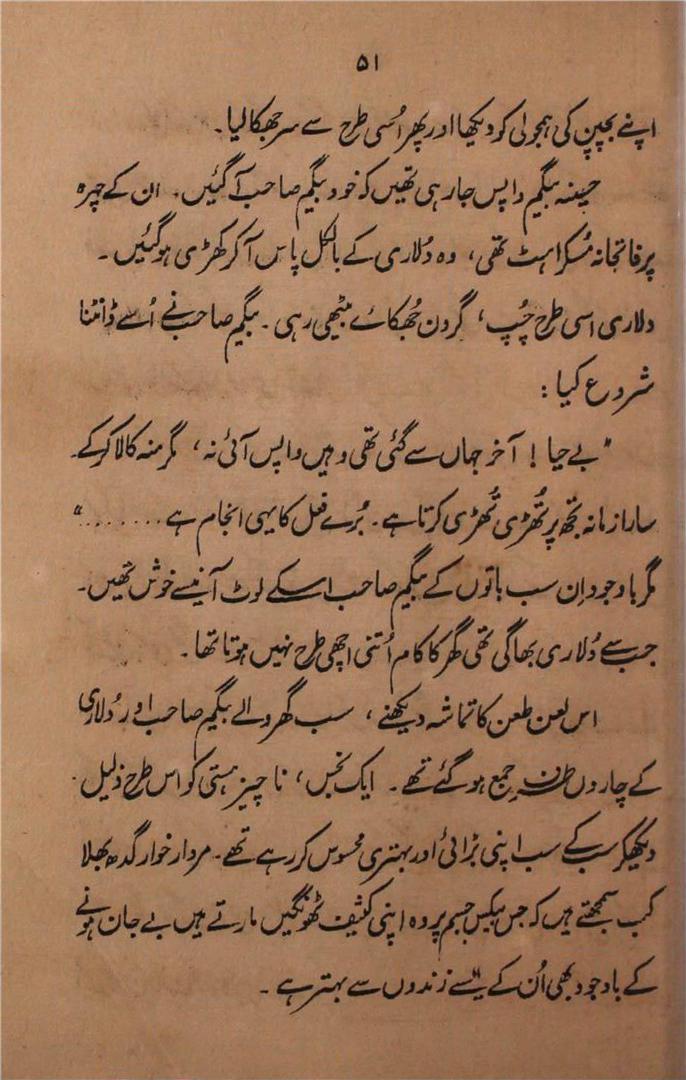 ۵۱
اپنے بچپن کی ہمجولی کو دیکھا اور پھر اُسی طرح سے سر جھکا لیا۔
حسینہ بیگم واپس جا رہی تھیں کہ خود بیگم صاحب آ گئیں۔ ان کے چہرہ
پر فاتحانہ مُسکراہٹ تھی، وہ دُلاری کے بالکل پاس آ کر کھڑی ہو گئیں۔
دلاری اسی طرح چُپ، گردن جُھکائے بیٹھی رہی۔ بیگم صاحب نے اُسے ڈانٹنا
شروع کیا :
”بے حیا ! آخر جہاں سے گئی تھی وہیں واپس آئی نہ، مگر منہ کالا کر کے۔
سارا زمانہ تجھ پر تُھڑی تُھڑی کرتا ہے۔ بُرے فعل کا یہی انجام ہے ........“
مگر باوجود اِن سب باتوں کے بیگم صاحب اسکے لوٹ آنیسے خوش تھیں۔
جب سے دُلاری بھاگی تھی گھر کا کام اُتنی اچھی طرح نہیں ہوتا تھا۔
اس لعن طعن کا تماشہ دیکھنے، سب گھر والے بیگم صاحب اور دُلاری
کے چاروں طرف جمع ہو گئے تھے۔ ایک نجس، ناچیز ہستی کو اس طرح ذلیل
دیکھکر سب کے سب اپنی بڑائی اور بہتری محسوس کر رہے تھے۔ مردار خوار گدھ بھلا
کب سمجھتے ہیں کہ جس بیکس جسم پر وہ اپنی کثیف ٹھونگیں مارتے ہیں بے جان ہونے
کے باوجود بھی اُن کے ایسے زندوں سے بہتر ہے۔